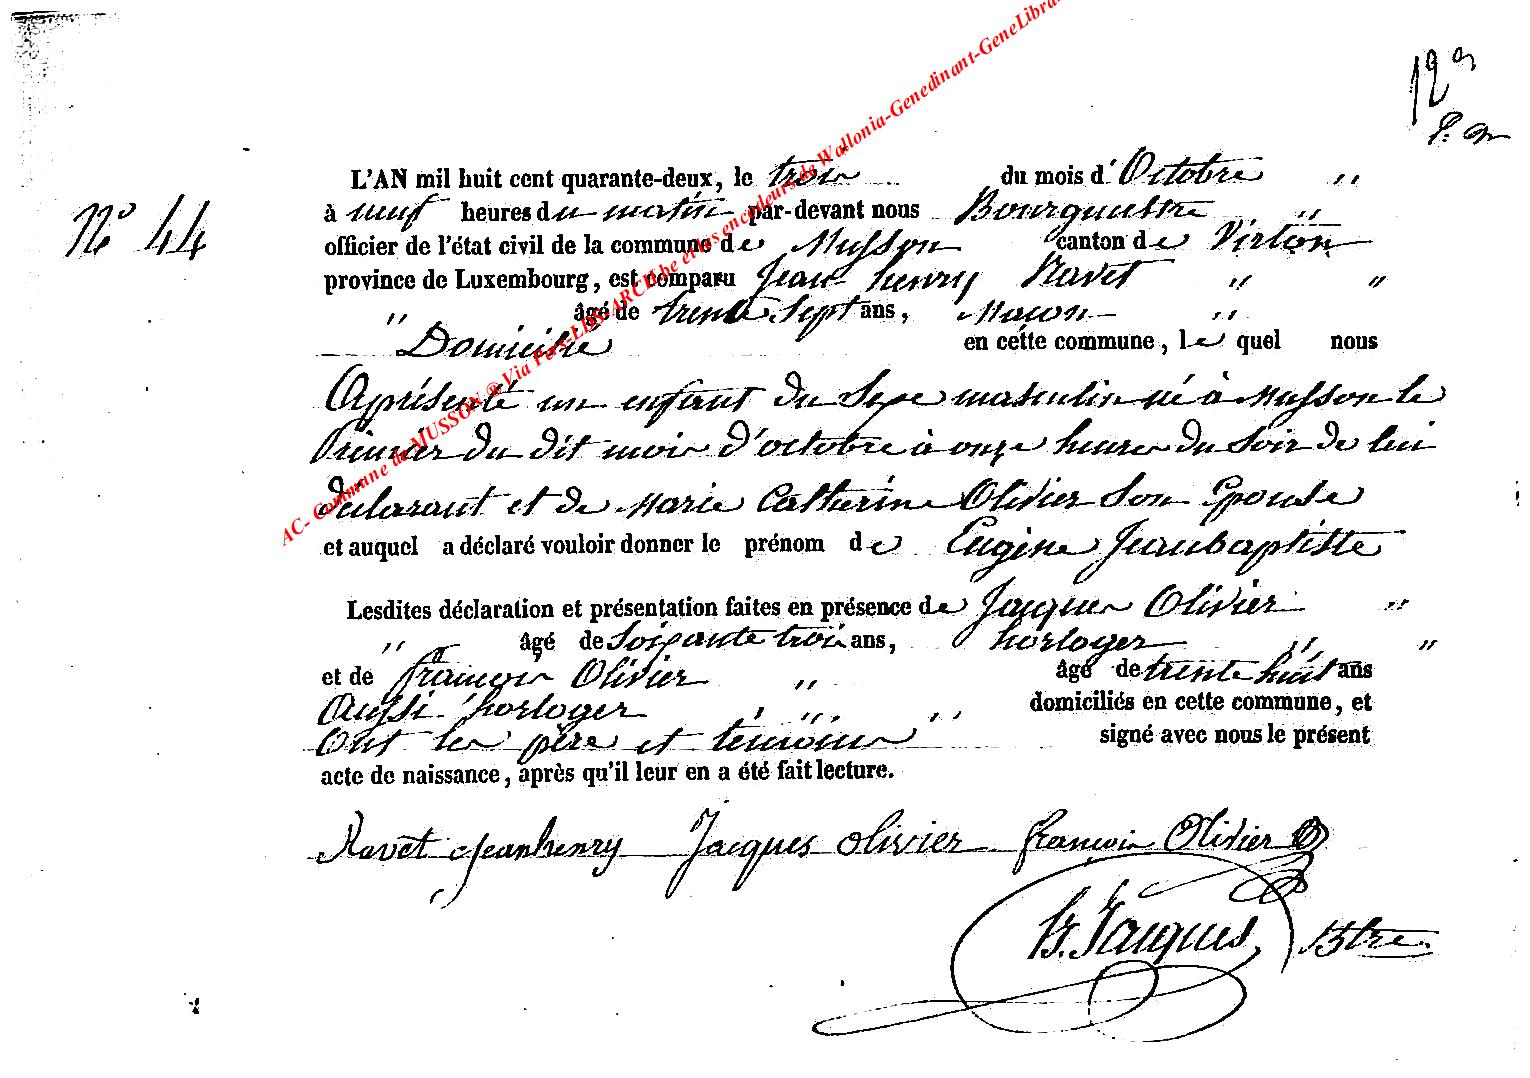 AC- Commune de MUSSON ® Via Pers-LDB-ARCH.be et les encodeurs de Wallonia-Genedinant-GeneLibra
12e
N° 44
L'AN mil huit cent quarante-deux, le trois du mois d'Octobre "
à neuf heures du matin par-devant nous Bourguestre "
officier de l'état civil de la commune de Musson canton de Virton
province de Luxembourg, est comparu Jean henry Ravet " "
" âgé de trente Sept ans, Maçon "
Domicilié en cette commune, le quel nous
A présenté un enfant du Sexe masculin né à Musson le
Premier du dit mois d'octobre à onze heures du Soir de lui
declarant et de Marie Catherine Olivier Son Epouse
et auquel a déclaré vouloir donner le prénom de Eugène Jeanbaptiste
Lesdites déclaration et présentation faites en présence de Jacques Olivier "
" âgé de Soixante trois ans, horloger " "
et de françois Olivier " âgé de trente huit ans
Aussi horloger " " domiciliés en cette commune, et
Ont les père et témoins signé avec nous le présent
acte de naissance, après qu'il leur en a été fait lecture.
Ravet jeanhenry Jacques olivier françois Olivier
Jacques Btre